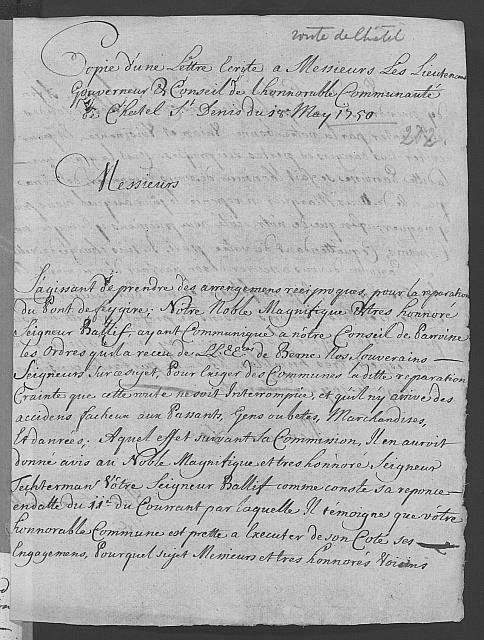 route de Châtel
Copie d'une Lettre Ecrite a Messieurs Les Lieutenant
Gouverneur & Conseil de l'honnorable Communauté
de Chatel St. Denis du 18 May 1750
272
Messieurs
S'agissant de prendre des arrengemens reciproques, pour la reparation
du Pont de feygire; Notre Noble Magnifique & tres honnoré
Seigneur Ballif, ayant Communiqué a notre Conseil de Parroisse
les Ordres qu'il a receu de LL.EE. de Berne Nos Souverains
Seigneurs sur ce sujet, Pour Exiger des Communes laditte reparation
Crainte que cette route ne soit Interrompüe, et qu'il n'y arive des
accidens facheux aux Passants, Gens ou betes, Marchandises,
Et danrées. A quel effet suivant sa Commission, Il en auroit
donné avis au Noble Magnifique et tres honnoré Seigneur
Techterman Vôtre Seigneur Ballif comme conste sa reponce
en datte du 11e. du Courrant par laquelle Il temoigne que votre
honnorable Commune est prette a Executer de son Coté ses
Engagemens, Pourquel sujet Messieurs et tres honnorés Voisins